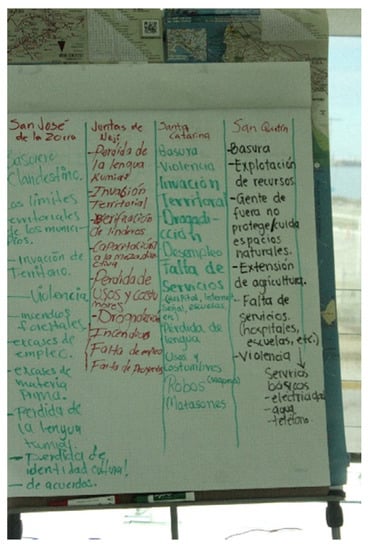 San José
de la Zorra
Basurero
Clandestino.
Los límites
territoriales
de los munici-
pios.
- Invasión de
Territorio.
- Violencia
- incendios
forestales.
- excases de
empleo.
- excases de
materia
Prima.
- Perdida de
la lengua
Kumiai.
- perdida de
identidad cultural
- de acuerdos.
Juntas de
Nejí
- Perdida de
la lengua
Kumiai
- Invasión
Territorial
- Verificación
de linderos
- Capacitación
a la
- Perdida de
Usos y costu
mbres
- Drogadicción
Incendios
Falta de empleo
Falta de Proyectos
Santa
Catarina
Basura
Violencia
Invación
Territorial
Drogadi-
cción
Desempleo
Falta de
Servicios
(hospital, Internet,
Señal, escuelas,
etc)
Pérdida de
lengua
Usos y
Costumbres
Robos
Matasones
San Quintín
- Basura
- Explotación
de recursos.
- Gente de
fuera no
protege/cuida
espacios
naturales.
- Extensión
de agricultura.
- Falta de
servicios.
(hospitales,
escuelas, etc)
- Violencia
Servicios
básicos
- electricidad
- agua
- teléfono